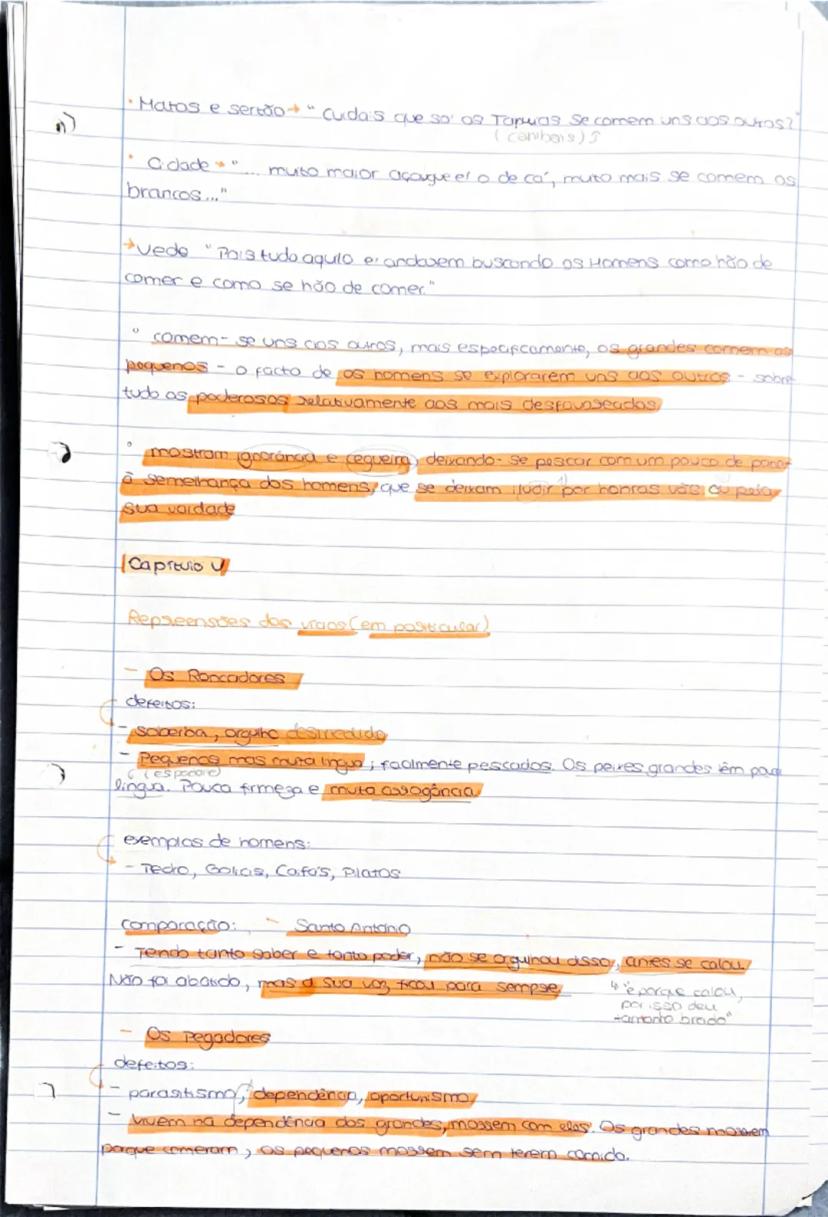 • Matos e sertão → "Cuidais que so' os Tapuias se comem uns aos outros?"
(canibais)
• Cidade → "... muito maior açougue e' o de ca', muito mais se comem os
brancos..."
→ Vede "Pois tudo aquilo e' andarem buscando os Homens como hão de
comer e como se hão de comer."
° comem-se uns aos outros, mais especificamente, os grandes comem os
pequenos - o facto de os homens se explorarem uns aos outros - sobre
tudo os poderosos relativamente aos mais desfavorecidos
° mostram ignorância e cegueira, deixando-se pescar com um pouco de pano
à semelhança dos homens, que se deixam iludir por honras vãs ou pela
sua vaidade
Capítulo V
Repreensões dos vicios (em particular)
- Os Roncadores
defeitos:
- soberba, orgulho desmedido
- Pequenos mas muita lingua; facilmente pescados. Os peixes grandes têm pouca
(espadarte)
lingua. Pouca firmeza e muita arrogância
exemplos de homens:
- Pedro, Golias, Caifás, Pilatos
comparação: - Santo António
- Tendo tanto saber e tanto poder, não se orgulhou disso, antes se calou
Não foi abatido, mas a sua voz ficou para sempre
↳ "e porque calou,
por isso deu
tamanho brado"
- Os Pegadores
defeitos:
- parasitismo, dependência, oportunismo
- vivem na dependência dos grandes, morrem com eles. Os grandes morrem
porque comeram, os pequenos morrem sem terem comido.